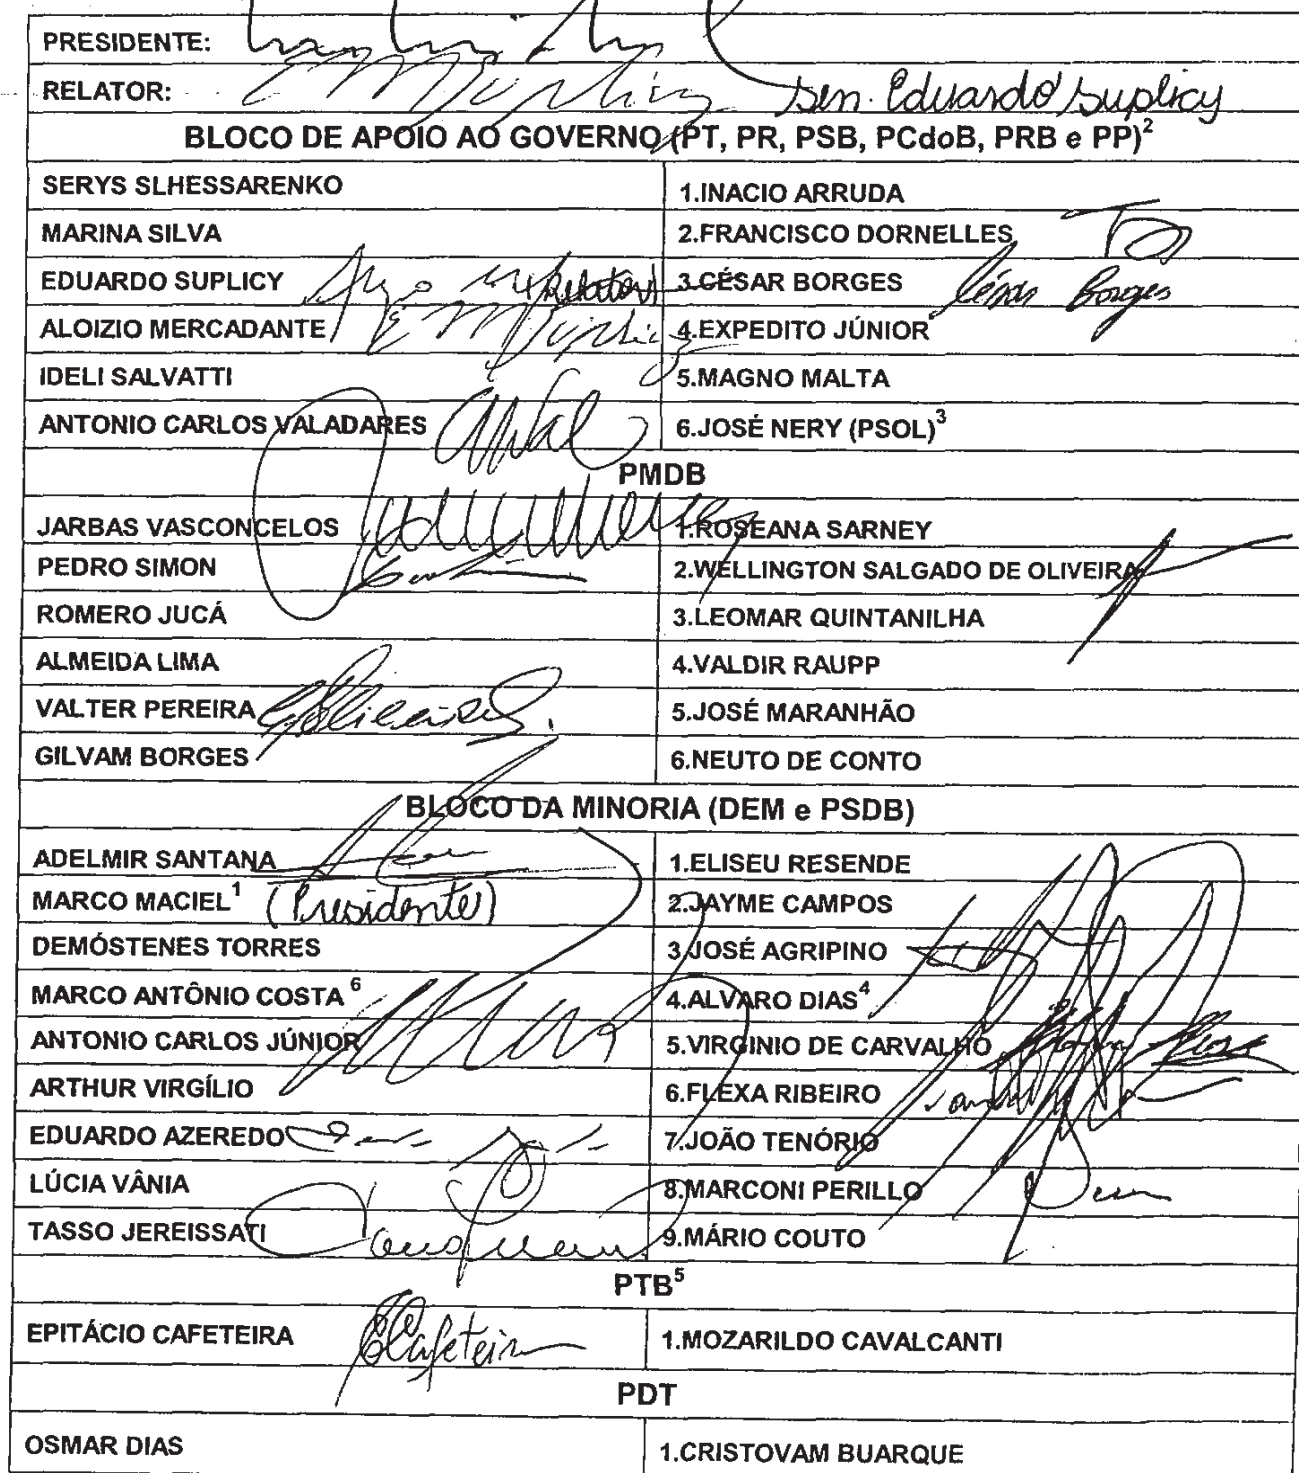 PRESIDENTE:
RELATOR: Sen. Eduardo Suplicy
BLOCO DE APOIO AO GOVERNO (PT, PR, PSB, PCdoB, PRB e PP)2
SERYS SLHESSARENKO 1.INACIO ARRUDA
MARINA SILVA 2.FRANCISCO DORNELLES
EDUARDO SUPLICY (Relator) 3.CÉSAR BORGES César Borges
ALOIZIO MERCADANTE 4.EXPEDITO JÚNIOR
IDELI SALVATTI 5.MAGNO MALTA
ANTONIO CARLOS VALADARES 6.JOSÉ NERY (PSOL)3
PMDB
JARBAS VASCONCELOS 1.ROSEANA SARNEY
PEDRO SIMON 2.WELLINGTON SALGADO DE OLIVEIRA
ROMERO JUCÁ 3.LEOMAR QUINTANILHA
ALMEIDA LIMA 4.VALDIR RAUPP
VALTER PEREIRA 5.JOSÉ MARANHÃO
GILVAM BORGES 6.NEUTO DE CONTO
BLOCO DA MINORIA (DEM e PSDB)
ADELMIR SANTANA 1.ELISEU RESENDE
MARCO MACIEL1 (Presidente) 2.JAYME CAMPOS
DEMÓSTENES TORRES 3.JOSÉ AGRIPINO
MARCO ANTÔNIO COSTA 6 4.ALVARO DIAS4
ANTONIO CARLOS JÚNIOR 5.VIRGINIO DE CARVALHO
ARTHUR VIRGÍLIO 6.FLEXA RIBEIRO
EDUARDO AZEREDO 7.JOÃO TENÓRIO
LÚCIA VÂNIA 8.MARCONI PERILLO
TASSO JEREISSATI 9.MÁRIO COUTO
PTB5
EPITÁCIO CAFETEIRA Cafeteira 1.MOZARILDO CAVALCANTI
PDT
OSMAR DIAS 1.CRISTOVAM BUARQUE